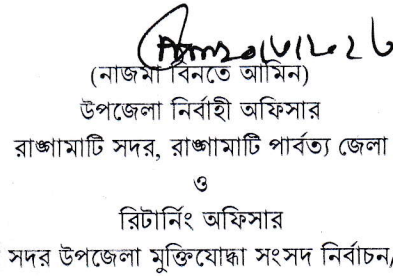 (নাজমা বিনতে আমিন)
উপজেলা নির্বাহী অফিসার
রাঙ্গামাটি সদর, রাঙ্গামাটি পার্বত্য জেলা
ও
রিটার্নিং অফিসার
সদর উপজেলা মুক্তিযোদ্ধা সংসদ নির্বাচন,